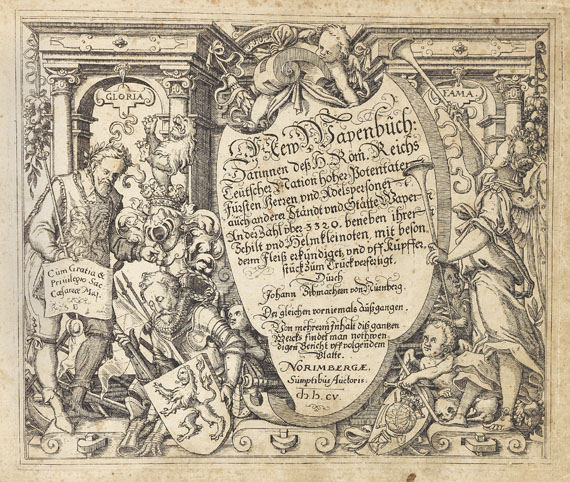 GLORIA
FAMA
New Wapenbuch:
Darinnen deß H. Röm. Reichs
Teutscher Nation hoher Potentaten
Fürsten Herren und Adelspersonen
auch anderer Ständt und Stätte Wapen
An der Zahl uber 3320. beneben ihrer
Schilt und Helmkleinoten, mit beson,
derm fleiß erkündiget, und uff Kupffer,
stück zum Truck verfertiget.
Durch
Johann Sibmachern von Nürnberg.
Der gleichen vor niemals außgangen.
Von mehrem Inhalt diß gantzen
Wercks findet man nothwen
digen Bericht uff volgendem
Blatte.
NORIMBERGÆ.
Sumptibus Auctoris.
Cum Gratia &
Privilegio Sac
Cæsareæ Mai.